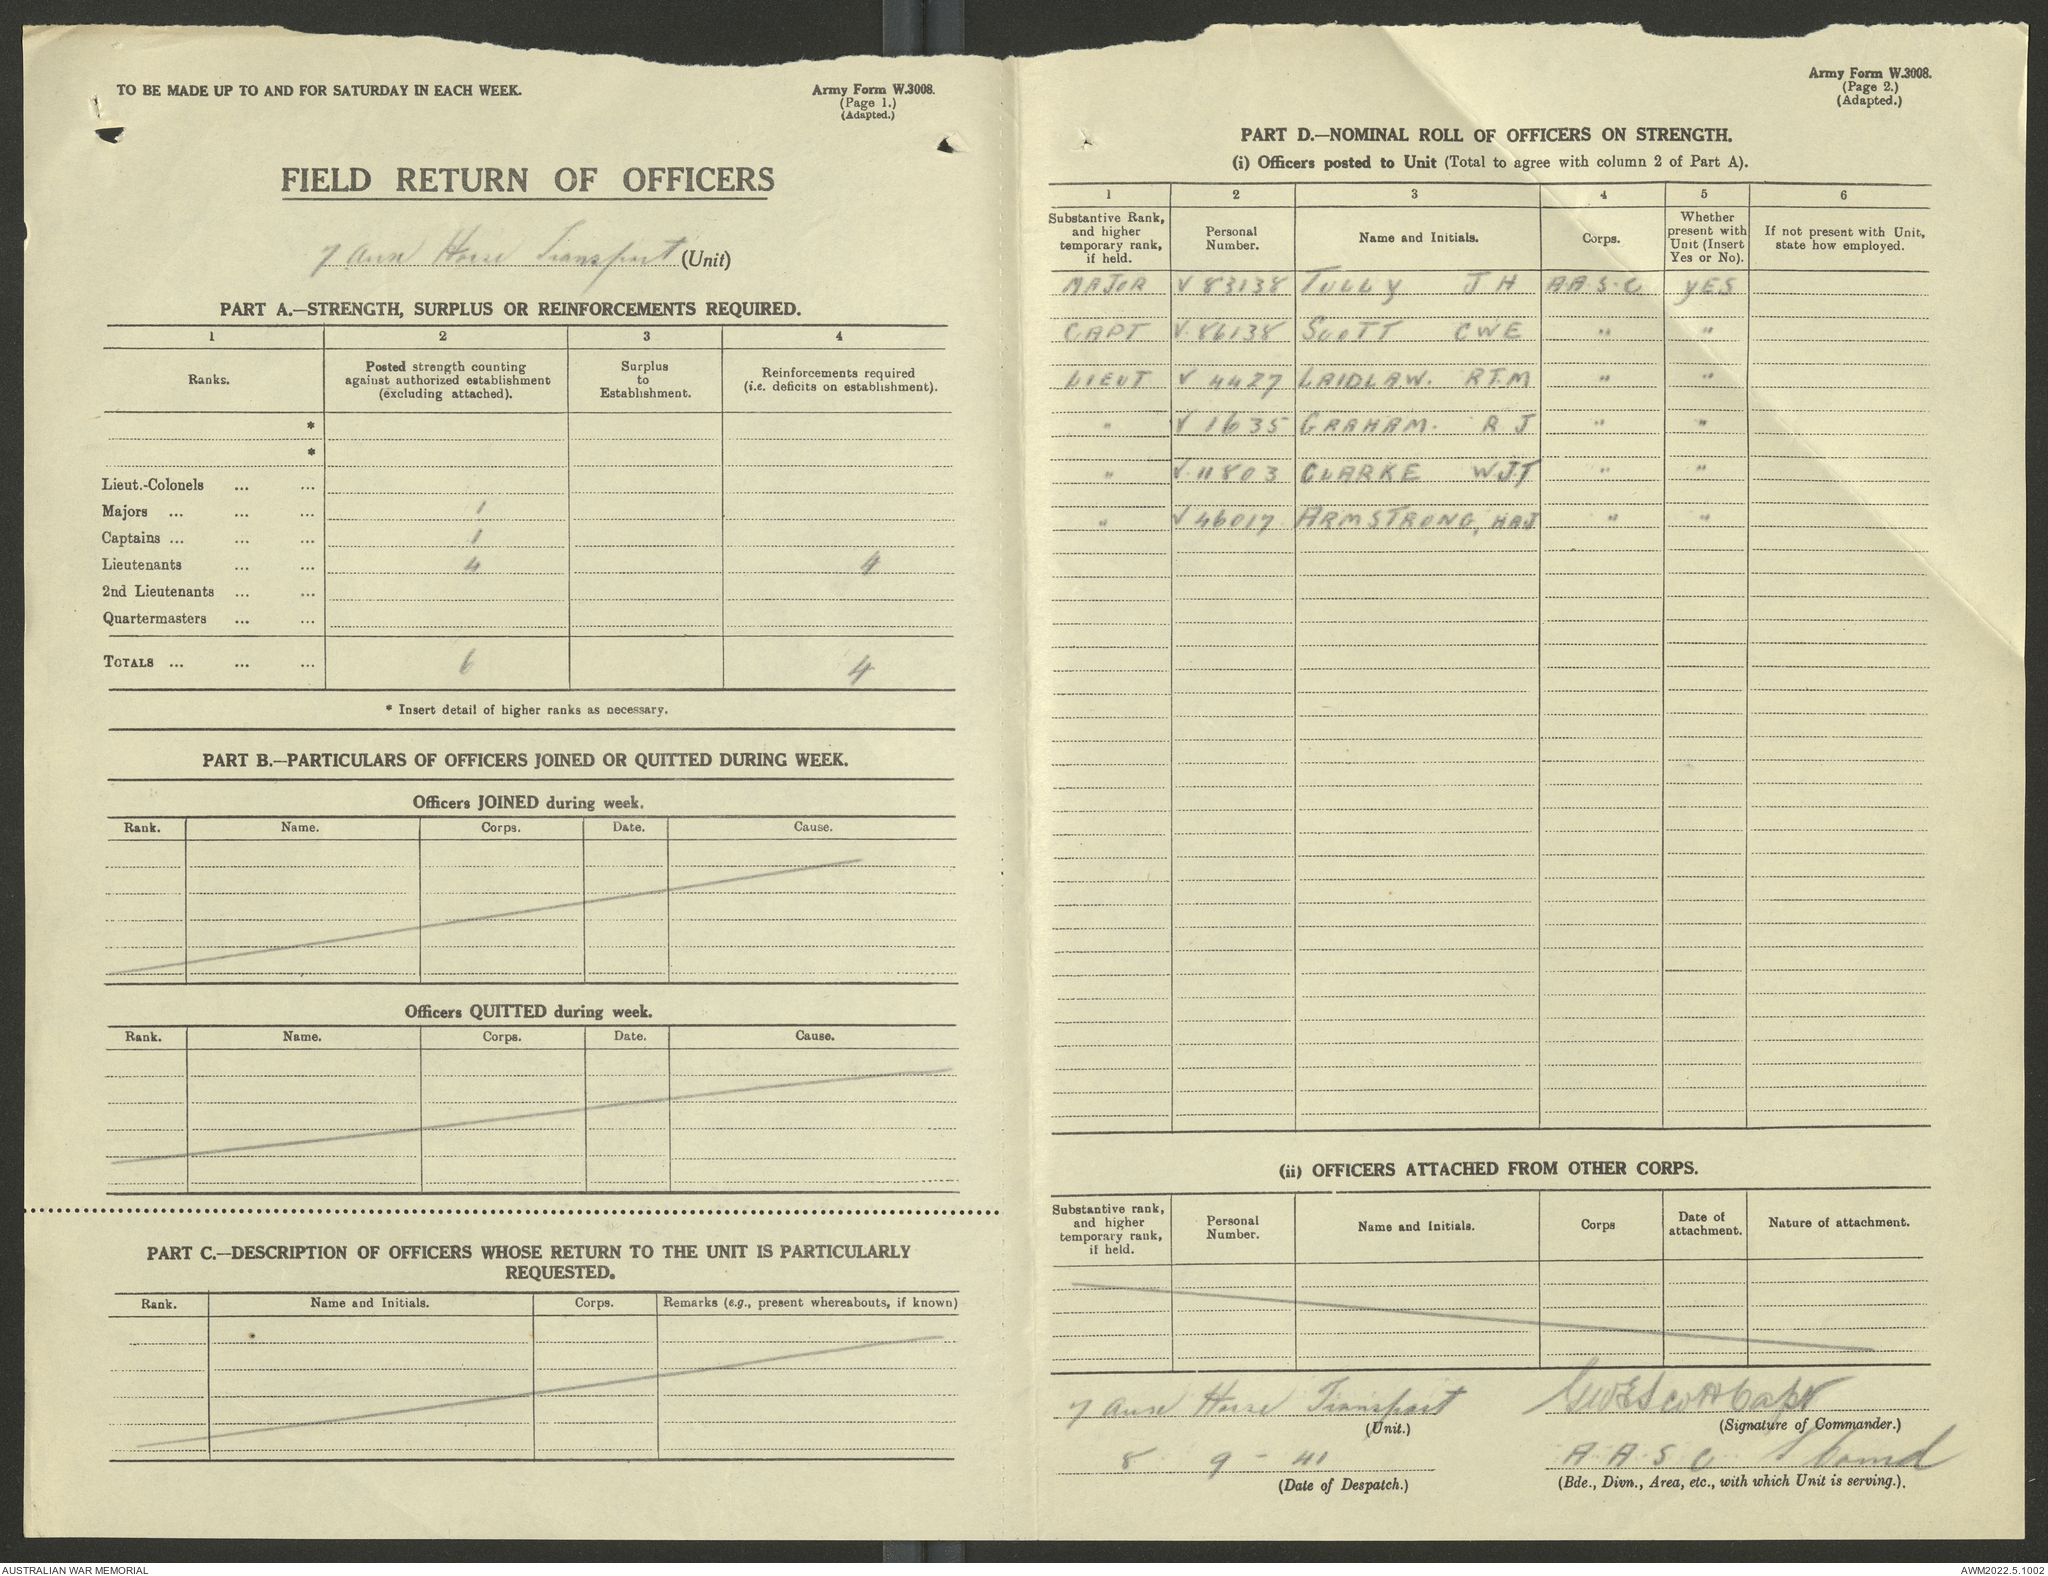 TO BE MADE UP TO AND FOR SATURDAY IN EACH WEEK.
Army Form W.3008.
(Page 1.)
(Adapted.)
FIELD RETURN OF OFFICERS
7 Aust Horse Transport (Unit)
PART A.—STRENGTH, SURPLUS OR REINFORCEMENTS REQUIRED.
1 2 3 4
Ranks. Posted strength counting against authorized establishment (excluding attached). Surplus to Establishment. Reinforcements required (i.e. deficits on establishment).
*
*
Lieut.-Colonels ... ...
Majors ... ... ... 1
Captains ... ... ... 1
Lieutenants ... ... 4 4
2nd Lieutenants ... ...
Quartermasters ... ...
TOTALS ... ... ... 6 4
* Insert detail of higher ranks as necessary.
PART B.—PARTICULARS OF OFFICERS JOINED OR QUITTED DURING WEEK.
Officers JOINED during week.
Rank. Name. Corps. Date. Cause.
Officers QUITTED during week.
Rank. Name. Corps. Date. Cause.
PART C.—DESCRIPTION OF OFFICERS WHOSE RETURN TO THE UNIT IS PARTICULARLY
REQUESTED.
Rank. Name and Initials. Corps. Remarks (e.g., present whereabouts, if known)
Army Form W.3008.
(Page 2.)
(Adapted.)
PART D.—NOMINAL ROLL OF OFFICERS ON STRENGTH.
(i) Officers posted to Unit (Total to agree with column 2 of Part A).
1 2 3 4 5 6
Substantive Rank, and higher temporary rank, if held. Personal Number. Name and Initials. Corps. Whether present with Unit (Insert Yes or No). If not present with Unit, state how employed.
MAJOR V 83138 TULLY J H A.A.S.C YES
CAPT V.86138 SCOTT CWE " "
LIEUT V 4427 LAIDLAW. R.T.M " "
" V 1635 GRAHAM. R J " "
" V.11803 CLARKE W.J.T " "
" V 46017 ARMSTRONG, HAJ " "
(ii) OFFICERS ATTACHED FROM OTHER CORPS.
Substantive rank, and higher temporary rank, if held. Personal Number. Name and Initials. Corps Date of attachment. Nature of attachment.
7 Aust Horse Transport GWEScott Capt
(Unit.) (Signature of Commander.)
8 9 - 41 A.A.S.C S Comd
(Date of Despatch.) (Bde., Divn., Area, etc., with which Unit is serving.).
AUSTRALIAN WAR MEMORIAL
AWM2022.5.1002